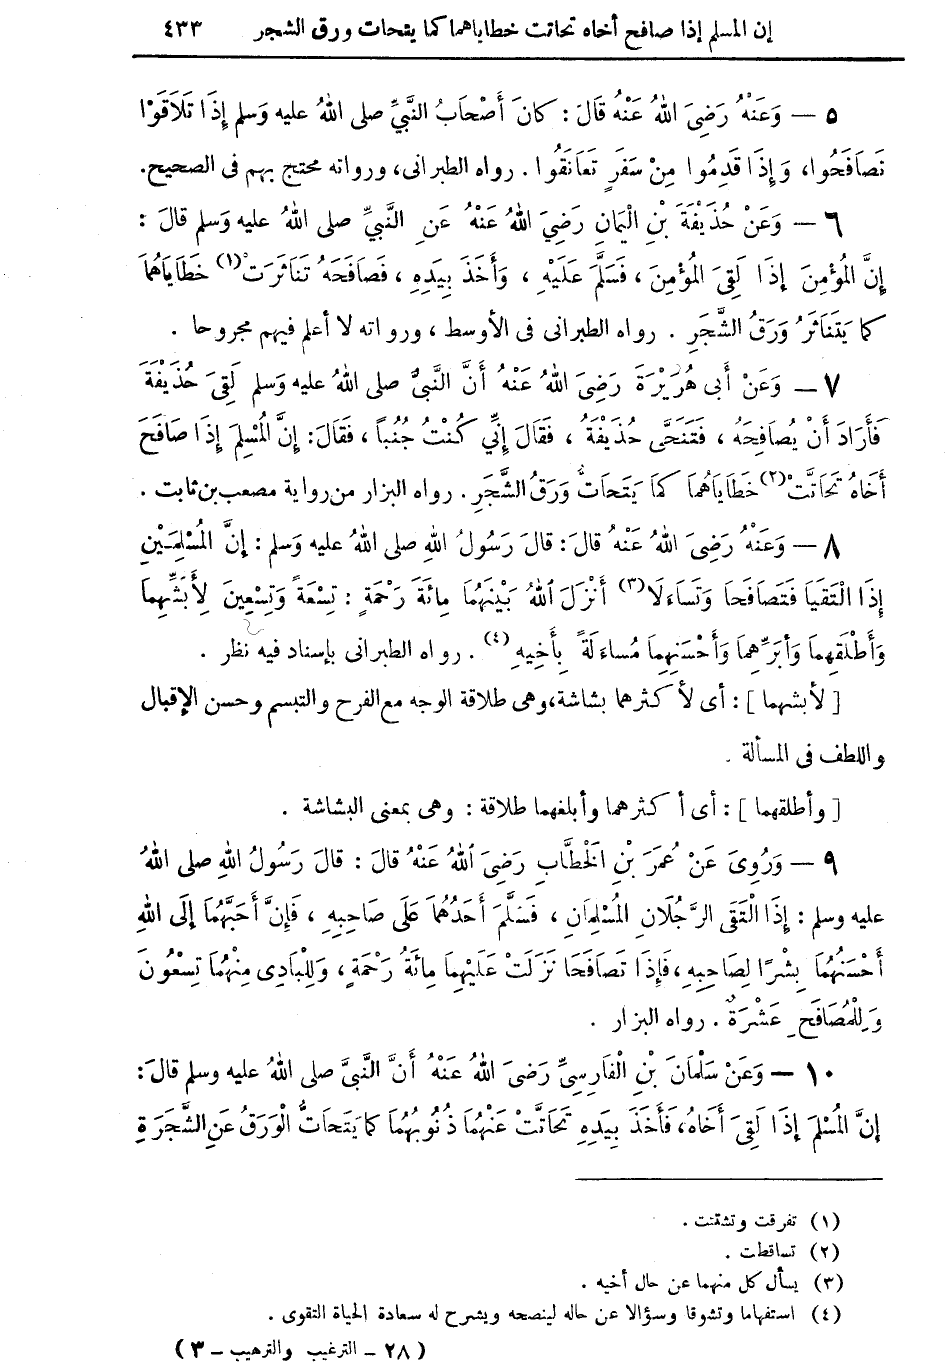 إن المسلم إذا صافح أخاه تحاتت خطاياهما كما يتحات ورق الشجر ٤٣٣
٥ — وَعَنْهُ رَضِىَ اللهُ عَنْهُ قَالَ: كانَ أَصْحَابُ النَّبِيِّ صلى اللهُ عليه وَسلم إِذَا تَلَاقَوْا
تَصَافَحُوا، وَإِذَا قَدِمُوا مِنْ سَفَرٍ تَعَانَقُوا. رواه الطبرانى، ورواته محتج بهم فى الصحيح.
٦ — وَعَنْ حُذَيْفَةَ بْنِ الْيَمَانِ رَضِىَ اللهُ عَنْهُ عَنِ النَّبِيِّ صلى اللهُ عليه وَسلم قالَ:
إِنَّ الْمُؤْمِنَ إِذَا لَقِىَ الْمُؤْمِنَ، فَسَلَّمَ عَلَيْهِ، وَأَخَذَ بِيَدِهِ، فَصَافَحَهُ تَنَاثَرَتْ (١) خَطَايَاهُمَا
كما يَتَنَاثَرُ وَرَقُ الشَّجَرِ. رواه الطبرانى فى الأوسط، ورواته لا أعلم فيهم مجروحا.
٧ — وَعَنْ أَبِى هُرَيْرَةَ رَضِىَ اللهُ عَنْهُ أَنَّ النَّبِيَّ صلى اللهُ عليه وَسلم لَقِىَ حُذَيْفَةَ
فَأَرَادَ أَنْ يُصَافِحَهُ، فَتَنَحَّى حُذَيْفَةُ، فَقَالَ إِنِّي كُنْتُ جُنُباً، فَقَالَ: إِنَّ الْمُسْلِمَ إِذَا صَافَحَ
أَخَاهُ تَحَاتَّتْ (٢) خَطَايَاهُمَا كَمَا يَتَحَاتُّ وَرَقُ الشَّجَرِ. رواه البزار من رواية مصعب بن ثابت.
٨ — وَعَنْهُ رَضِىَ اللهُ عَنْهُ قالَ: قالَ رَسُولُ اللهِ صلى اللهُ عليه وَسلم: إِنَّ الْمُسْلِمَيْنِ
إِذَا الْتَقَيَا فَتَصَافَحَا وَتَسَاءَلَا (٣) أَنْزَلَ اللهُ بَيْنَهُمَا مِائَةَ رَحْمَةٍ: تِسْعَةً وَتِسْعِينَ لِأَبَشِّهِمَا
وَأَطْلَقِهِمَا وَأَبَرِّهِمَا وَأَحْسَنِهِمَا مُساءَلَةً بِأَخِيهِ (٤). رواه الطبرانى بإسناد فيه نظر.
[لأبشهما]: أى لأكثرهما بشاشة، وهى طلاقة الوجه مع الفرح والتبسم وحسن الإقبال
واللطف فى المسألة.
[وأطلقهما]: أى أكثرهما وأبلغهما طلاقة: وهى بمعنى البشاشة.
٩ — وَرُوِىَ عَنْ عُمَرَ بْنِ الْخَطَّابِ رَضِىَ اللهُ عَنْهُ قالَ: قالَ رَسُولُ اللهِ صلى اللهُ
عليه وسلم: إِذَا الْتَقَى الرَّجُلَانِ الْمُسْلِمَانِ، فَسَلَّمَ أَحَدُهُمَا عَلَى صَاحِبِهِ، فَإِنَّ أَحَبَّهُمَا إِلَى اللهِ
أَحْسَنُهُمَا بِشْرًا لِصَاحِبِهِ، فَإِذَا تَصَافَحَا نَزَلَتْ عَلَيْهِمَا مِائَةُ رَحْمَةٍ، وَلِلْبَادِى مِنْهُمَا تِسْعُونَ
وَلِلْمُصَافَحِ عَشْرَةٌ. رواه البزار.
١٠ — وَعَنْ سَلْمَانَ بْنِ الْفَارِسِيِّ رَضِىَ اللهُ عَنْهُ أَنَّ النَّبِيَّ صلى اللهُ عليه وسلم قالَ:
إِنَّ الْمُسْلِمَ إِذَا لَقِىَ أَخَاهُ، فَأَخَذَ بِيَدِهِ تَحَاتَّتْ عَنْهُمَا ذُنُوبُهُمَا كما يَتَحَاتُّ الْوَرَقُ عَنِ الشَّجَرَةِ
(١) تفرقت وتشتتت.
(٢) تساقطت.
(٣) يسأل كل منهما عن حال أخيه.
(٤) استفهاما وتشوقا وسؤالا عن حاله لينصحه ويشرح له سعادة الحياة التقوى.
(٢٨ – الترغيب والترهيب – ٣)